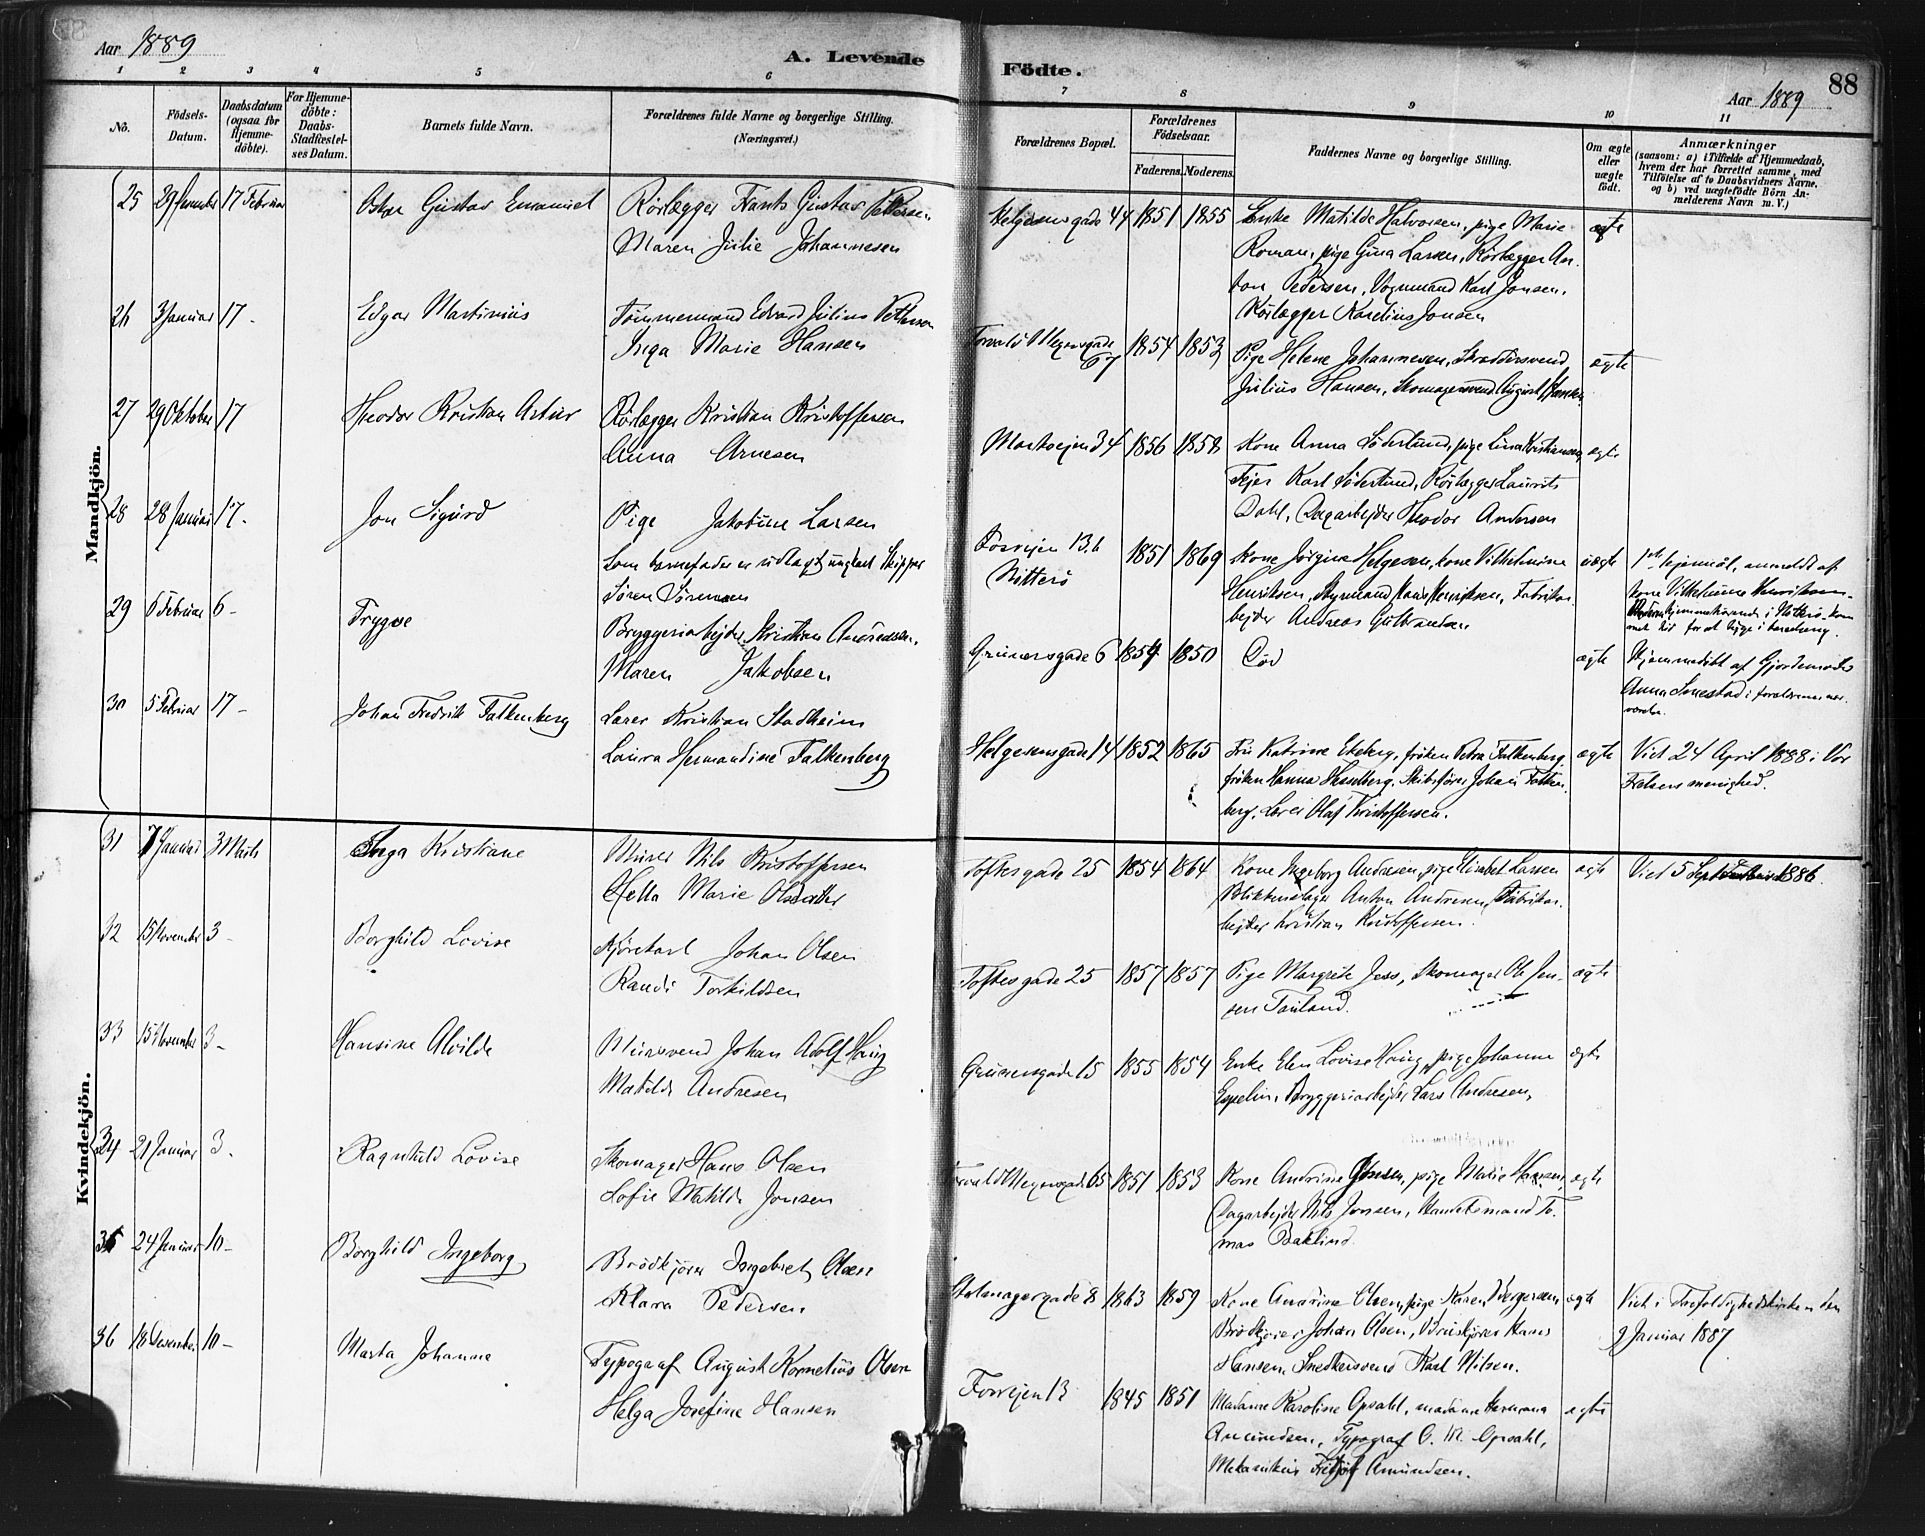 Aar 1889
A. Levende
Födte.
Aar 1889
88
1 2 3 4 5 6 7 8 9 10 11
No.
Födsels-Datum.
Daabsdatum (ogsaa for Hjemme-döbte).
For Hjemme-döbte: Daabs-Stadfæstel-ses Datum.
Barnets fulde Navn.
Forældrenes fulde Navne og borgerlige Stilling.
(Næringsvei.)
Forældrenes Bopæl.
Forældrenes Födselsaar.
Faderens. Moderens.
Faddernes Navne og borgerlige Stilling.
Om ægte eller uægte födt.
Anmærkninger
(saasom: a) i Tilfælde af Hjemmedaab, hvem der har forrettet samme, med Tilföielse af to Daabsvidners Navne, og b) ved uægtefödte Börn Anmelderens Navn m. V.)
Mandkjön.
25 17 Februar Oskar Gustav Emanuel Rörlægger Frants Gustav Pettersen
Maren Julie Johannesen
Helgesensgade 44 1851 1855 Enke Matilde Halvorsen, pige Marie
Roman, pige Gina Larsen, Rörlægger An-
ton Pedersen, Vognmand Karl Jonsen,
Rörlægger Karelius Jonsen
ægte
26 3 Januar 17 - Edgar Martinius Tömmermand Edvard Julius Pettersen
Inga Marie Hansen
Torvald Meyersgade 67 1854 1853 Pige Helene Johannesen, Skræddersvend
Julius Hansen, Skomagersvend August Hansen
ægte
27 29 Oktober 17 Theodor Kristian Artur Rörlægger Kristian Kristoffersen
Anna Arnesen
Markvejen 34 1856 1858 Kone Anna Söderlund, pige Lina Kristiansen,
Fejer Karl Söderlund, Rörlægger Laurits
Dahl, Dagarbejder Theodor Andersen
ægte
28 28 Januar 17. Jon Sigurd Pige Jakobine Larsen
Som barnefader er udlagt ungkarl Skipper
Sören Sörensen
Fossvejen 13.b
Hitterö
1851 1869 Kone Jörgine Helgesen, kone Vilhelmine
Henriksen, Styrmand Hans Henriksen, Fabrikar-
bejder Andreas Gulbrandsen
uægte 1ste lejermål, anmeldt af
kone Vilhelmine Henriksen.
Moderen hjemmehörende i Hitterö, kom-
met hid for at ligge i barselseng.
29 6 Februar 6 - Trygve Bryggeriarbejder Kristian Andreassen.
Maren Jakobsen
Grünersgade 6 1854 1850 Död ægte Hjemmedöbt af Gjordemoder
Anna i forældrenes nær-
værelse.
30 5 Februar 17 - Johan Fredrik Falkenberg Lærer Kristian Stadheim
Laura Hermandine Falkenberg
Helgesensgade 14 1852 1865 Fru Katrine Ekeberg, fröken Petra Falkenberg,
fröken Hanna Hesselberg, Skibsförer Johan Falken-
berg, Lærer Olaf Kristoffersen.
ægte Viet 24 April 1888 i Vor
Frelsers menighed.
Kvindekjön.
31 7 Januar 3 Marts Inga Kristiane Murer Nils Kristoffersen
Hella Marie Olsdatter
Toftesgade 25 1854 1864 Kone Ingeborg Andresen, pige Elisabet Larsen
Blikkenslager Anton Andresen, Fabrikar-
bejder Kristian Kristoffersen.
ægte Viet 5 September 1886.
32 15 November 3 - Borghild Lovise Kjörekarl Johan Olsen
Randi Torkildsen
Toftesgade 25 1857 1857 Pige Margrete Jess, Skomager Ole Jen-
sen Tauland.
ægte
33 15 November 3 - Hansine Alvilde Murersvend Johan Adolf Haug
Matilde Andresen
Grünersgade 15 1855 1854 Enke Elen Lovise Haug, pige Johanne
Espelin, Bryggeriarbejder Lars Andresen,
ægte
34 21 Januar 3. Ragnhild Lovise Skomager Hans Olsen
Sofie Matilde Jonsen
Torvald Meyersgade 65 1851 1853 Kone Andrine Jonsen, pige Marie Hansen,
Dagarbejder Nils Jonsen, Handelsmand To-
mas Baklund.
ægte
35 24 Januar 10 - Borghild Ingeborg Brödkjörer Ingebret Olsen
Klara Pedersen
Stolmagergade 8 1863 1859 Kone Andrine Olsen, pige Karen Borgersen
Brödkjörer Johan Olsen, Hans
Hansen, Snedkersvend Karl Nilsen.
ægte Viet i Trefoldighedskirken den
9 Januar 1887
36 18 Desember 10 - Marta Johanne Typograf August Kornelius Olsen
Helga Josefine Hansen
Fossvejen 13 1845 1851 Madame Karoline Opsahl, madame Hermana
Amundsen, Typograf O. M. Opsahl,
Mekanikus Fredrik Amundsen.
ægte